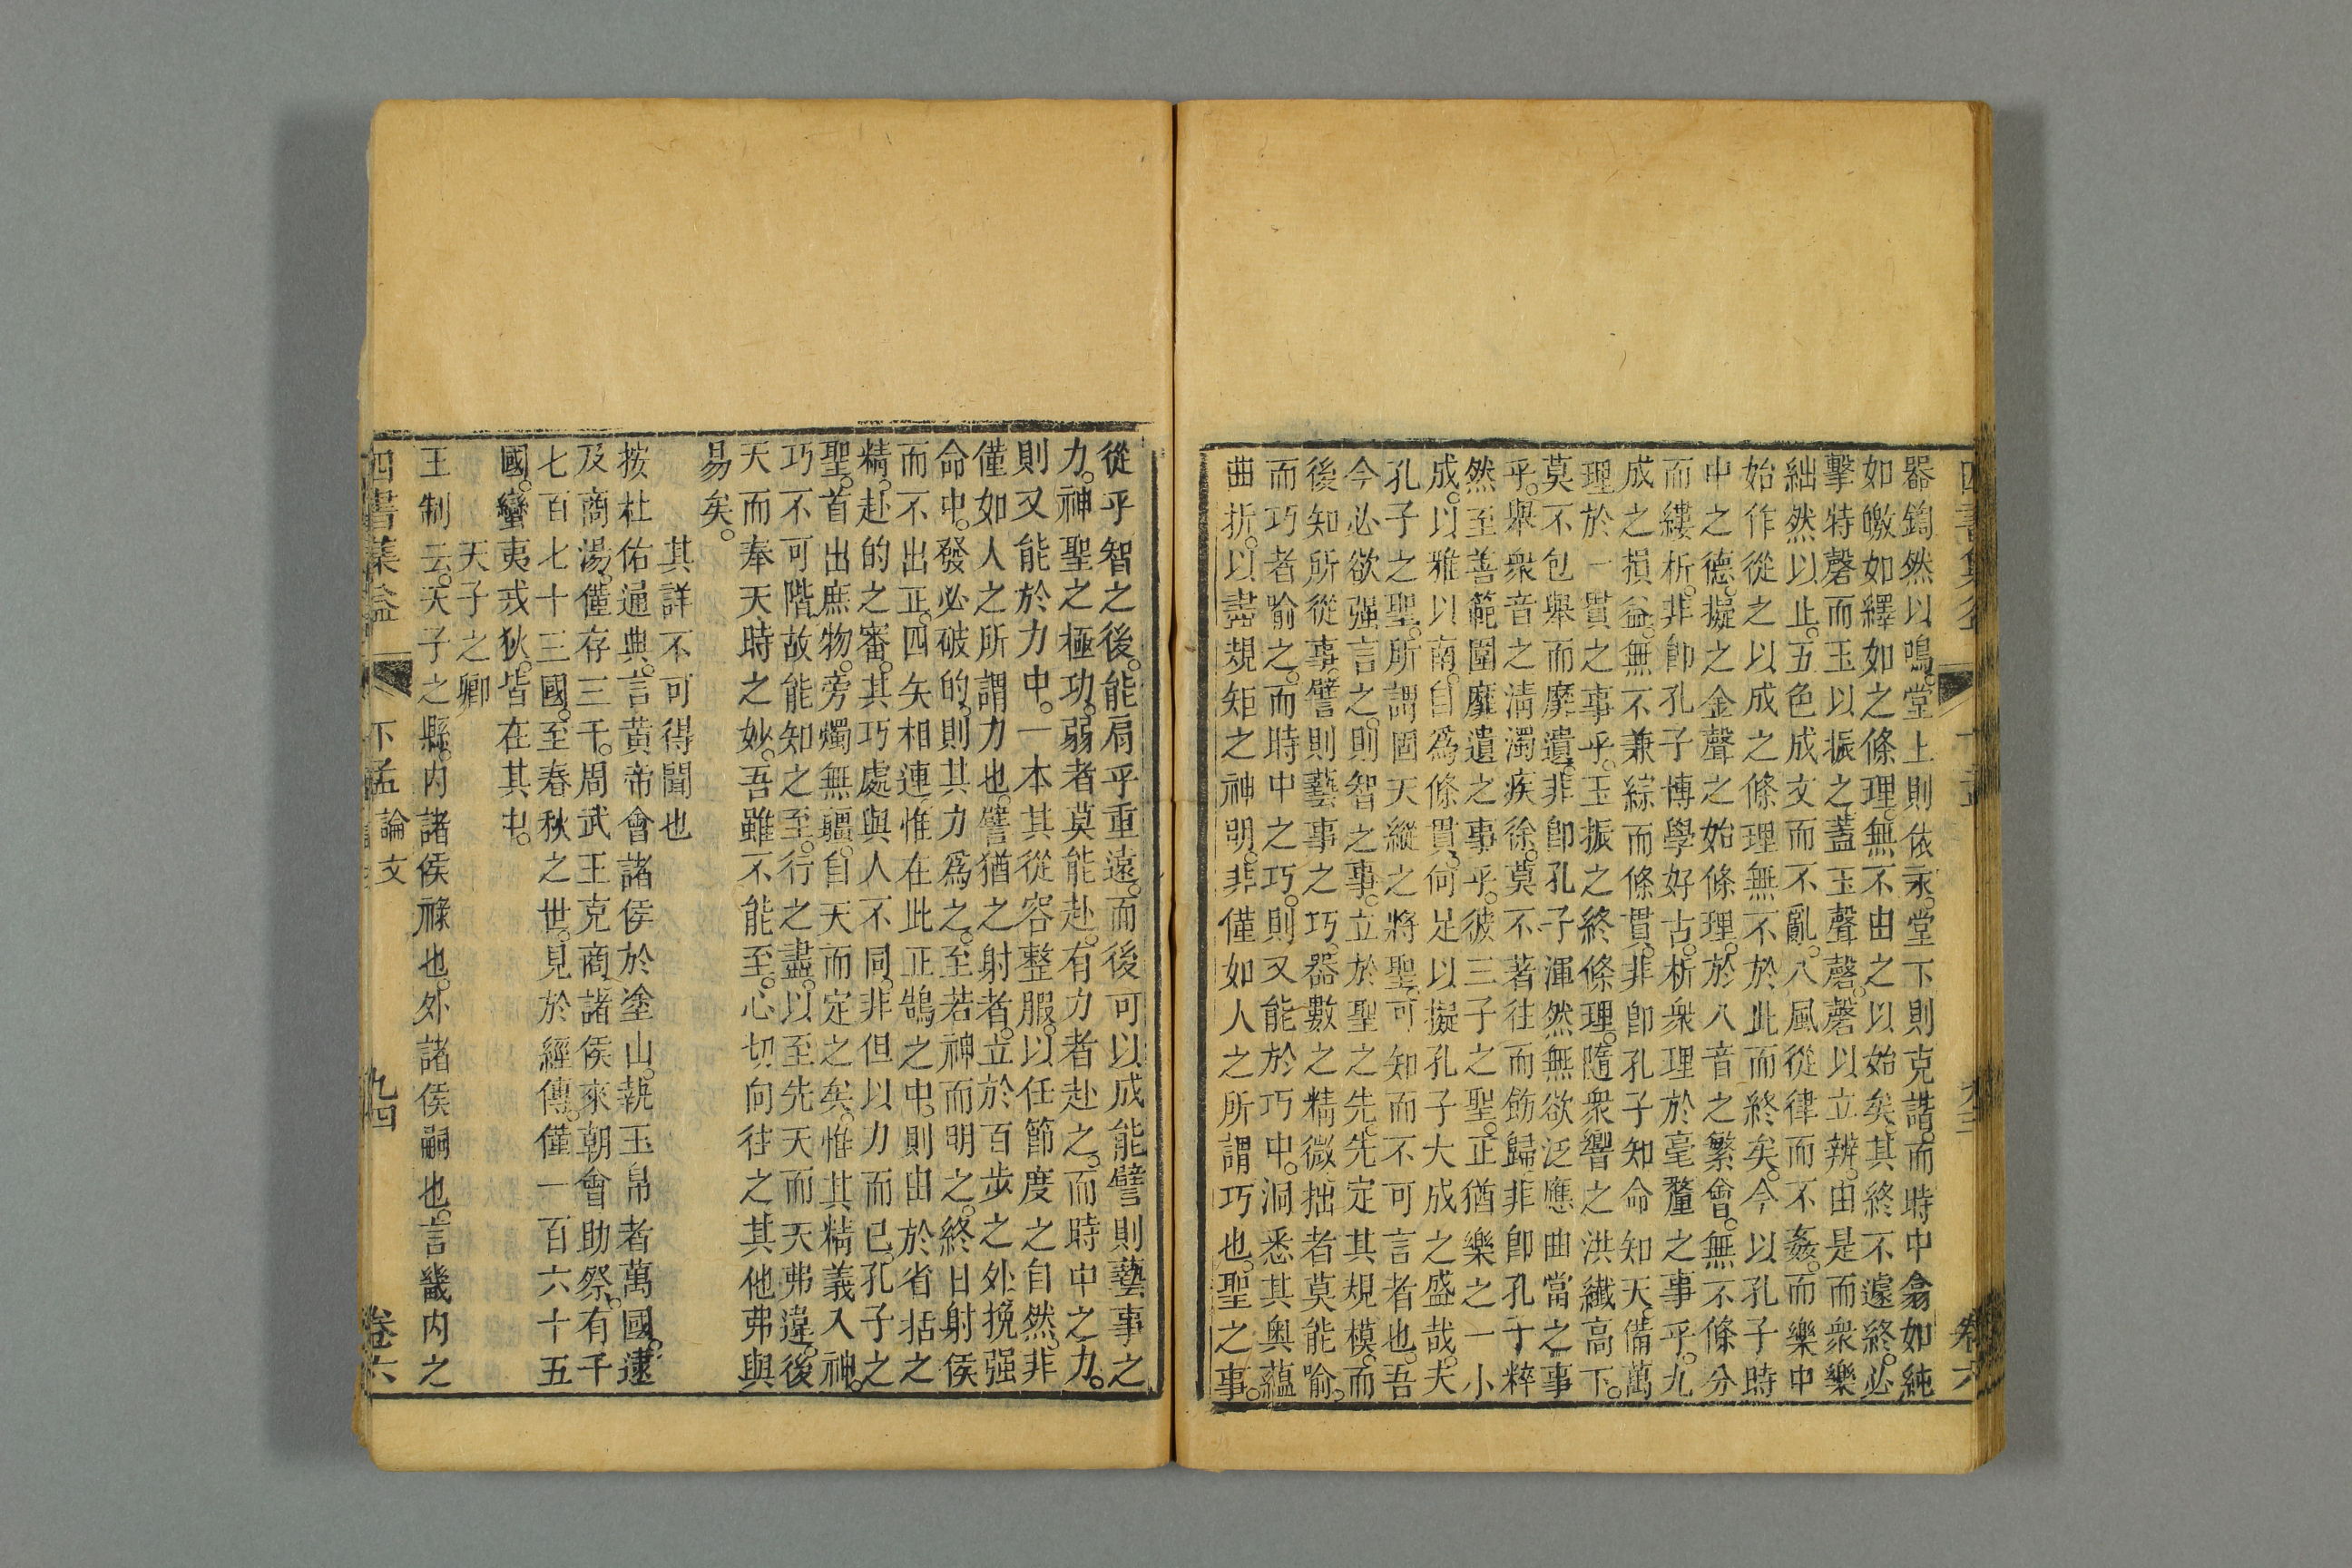 器鎛然以鳴。堂上則依永。堂下則克諧。而時中翕如純
如皦如繹如之條理。無不由之以始矣。其終不遽終。必
擊特磬而玉以振之。蓋玉聲磬。磬以立辨。由是而衆樂
絀然以止。五色成文而不亂。八風從律而不姦。而樂中
始作從之以成之條理無不於此而終矣。今以孔子時
中之德。擬之金聲之始條理。於八音之繁會。無不條分
而縷析。非卽孔子博學好古。析衆理於毫釐之事乎。九
成之損益。無不兼綜而條貫。非卽孔子知命知天。備萬
理於一貫之事乎。玉振之終條理。隨衆響之洪纖高下。
莫不包舉而靡遺。非卽孔子渾然無欲泛應曲當之事
乎。舉衆音之淸濁疾徐。莫不著往而飭歸。非卽孔子粹
然至善範圍靡遺之事乎。彼三子之聖。正猶樂之一小
成。以雅以南。自爲條貫。何足以擬孔子大成之盛哉。夫
孔子之聖。所謂固天縱之將聖。可知而不可言者也。吾
今必欲强言之。則智之事。立於聖之先。先定其規模。而
後知所從事。譬則藝事之巧。器數之精微。拙者莫能喻。
而巧者喻之。而時中之巧。則又能於巧中。洞悉其奧蘊
曲折。以盡規矩之神明。非僅如人之所謂巧也。聖之事。
從乎智之後。能肩乎重遠。而後可以成能。譬則藝事之
力。神聖之極功。弱者莫能赴。有力者赴之。而時中之力。
則又能於力中。一本其從容整服。以任節度之自然。非
僅如人之所謂力也。譬猶之射者。立於百步之外。挽强
命中。發必破的。則其力爲之。至若神而明之。終日射侯
而不出正。四矢相連。惟在此正鵠之中。則由於省括之
精。赴的之審。其巧處與人不同。非但以力而已。孔子之
聖。首出庶物。旁燭無疆。自天而定之矣。惟其精義入神。
巧不可階。故能知之至。行之盡。以至先天而天弗違。後
天而奉天時之妙。吾雖不能至。心切向往之。其他弗與
易矣。
其詳不可得聞也
按杜佑通典。言黃帝會諸侯於塗山。執玉帛者萬國。逮
及商湯。僅存三千。周武王克商。諸侯來朝會助祭。有千
七百七十三國。至春秋之世。見於經傳。僅一百六十五
國。蠻夷戎狄。皆在其中。
天子之卿
王制云。天子之縣。內諸侯祿也。外諸侯嗣也。言畿內之
四書集益 下孟 論文 九四 卷六